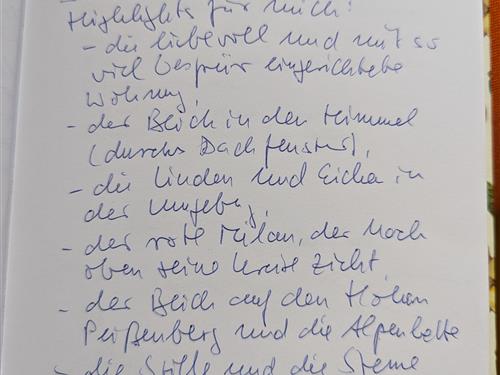 Highlights für mich:
- die liebevoll und mit so
viel Gespür eingerichtete
Wohnung,
- der Blick in den Himmel
(durchs Dachfenster),
- die Linden und Eichen in
der Umgebung,
- der rote Milan, der hoch
oben seine Kreise zieht,
- der Blick auf den Hohen
Peißenberg und die Alpenkette
- die Stille und die Sterne